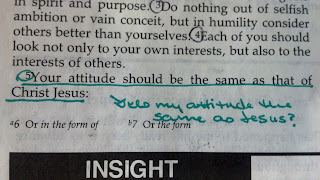 in spirit and purpose. 3 Do nothing out of selfish
ambition or vain conceit, but in humility consider
others better than yourselves. 4 Each of you should
look not only to your own interests, but also to the
interests of others.
5 Your attitude should be the same as that of
Christ Jesus:
my attitude the
same as Jesus?
a6 Or in the form of b7 Or the form
INSIGHT